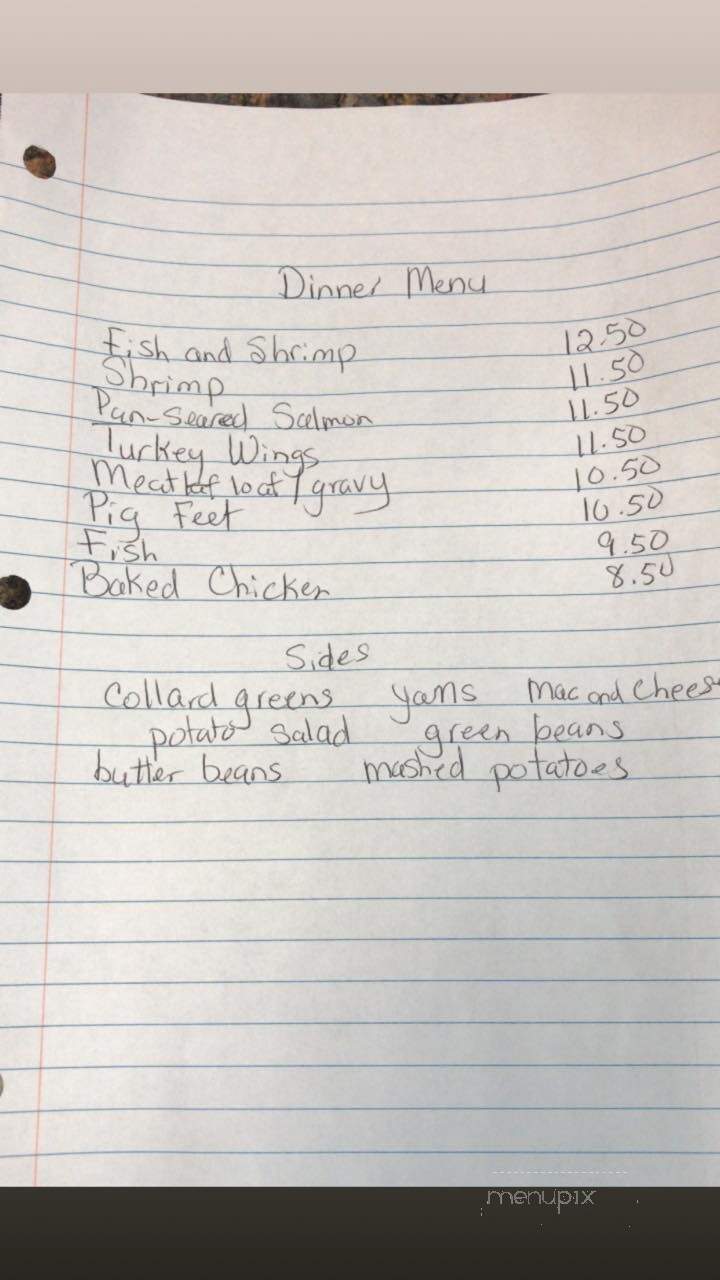 Dinner Menu
Fish and Shrimp 12.50
Shrimp 11.50
Pan-Seared Salmon 11.50
Turkey Wings 11.50
Meat loaf / gravy 10.50
Pig Feet 10.50
Fish 9.50
Baked Chicken 8.50
Sides
Collard greens yams Mac and Chees
potato salad green beans
butter beans mashed potatoes
menupix